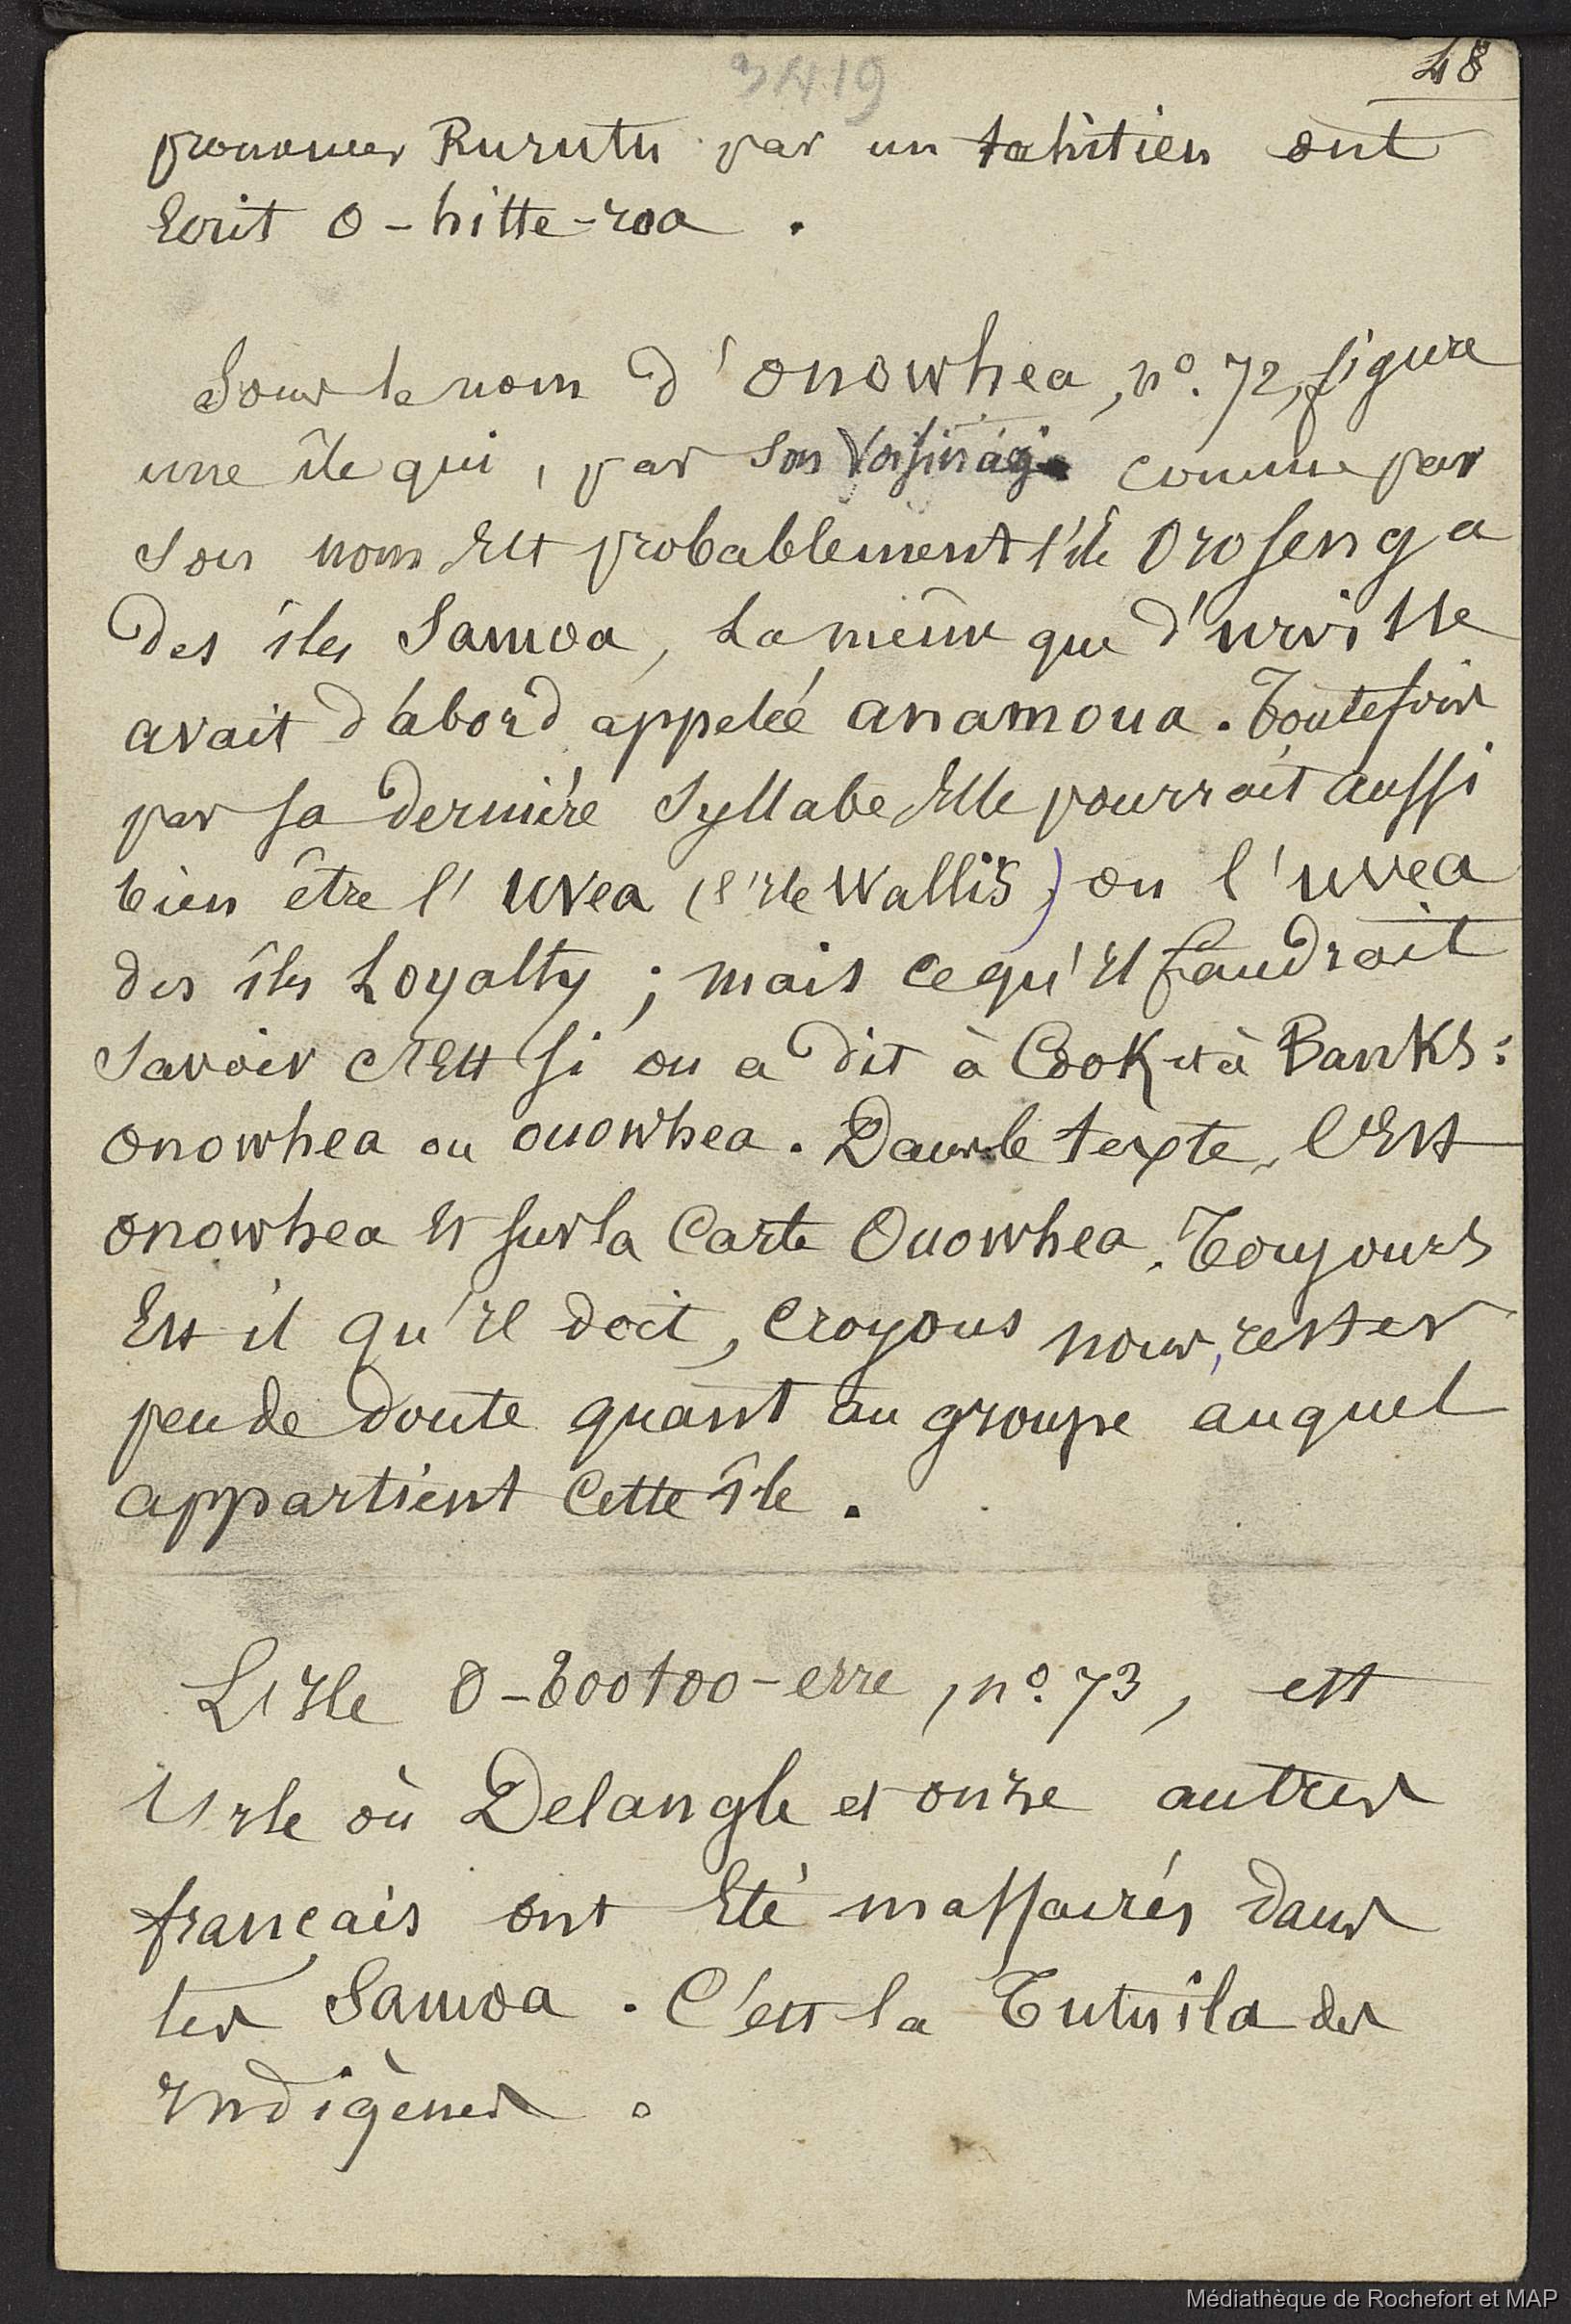 48
3419
prononcer Rurutu par un tahitien ont
Ecrit O-hitte-roa .
Sous le nom d'onowhea, no. 72, figure
une île qui, par son voisinage comme par
son nom Est probablement l'île Orosenga
des îles Samoa, La même que d'urville
avait d'abord appelée anamoua. Toutefois
par sa dernière syllabe Elle pourrait aussi
bien être l'uvea (l'Ile Wallis) ou l'uvea
des îles Loyalty ; mais ce qu'Il faudrait
savoir c'Est si on a dit à Cook et à Banks :
onowhea ou ouowhea. Dans le texte, C'Est
onowhea Et sur la Carte Ouowhea. Toujours
Est il qu'Il doit, croyons nous, rester
peu de doute quant au groupe auquel
appartient Cette île.
L'Isle O-Tootoo-erre, no. 73, est
l'Ile où Delangle et onze autres
français ont Eté massacrés dans
les Samoa. C'est la Tutuila des
Indigènes.
Médiathèque de Rochefort et MAP